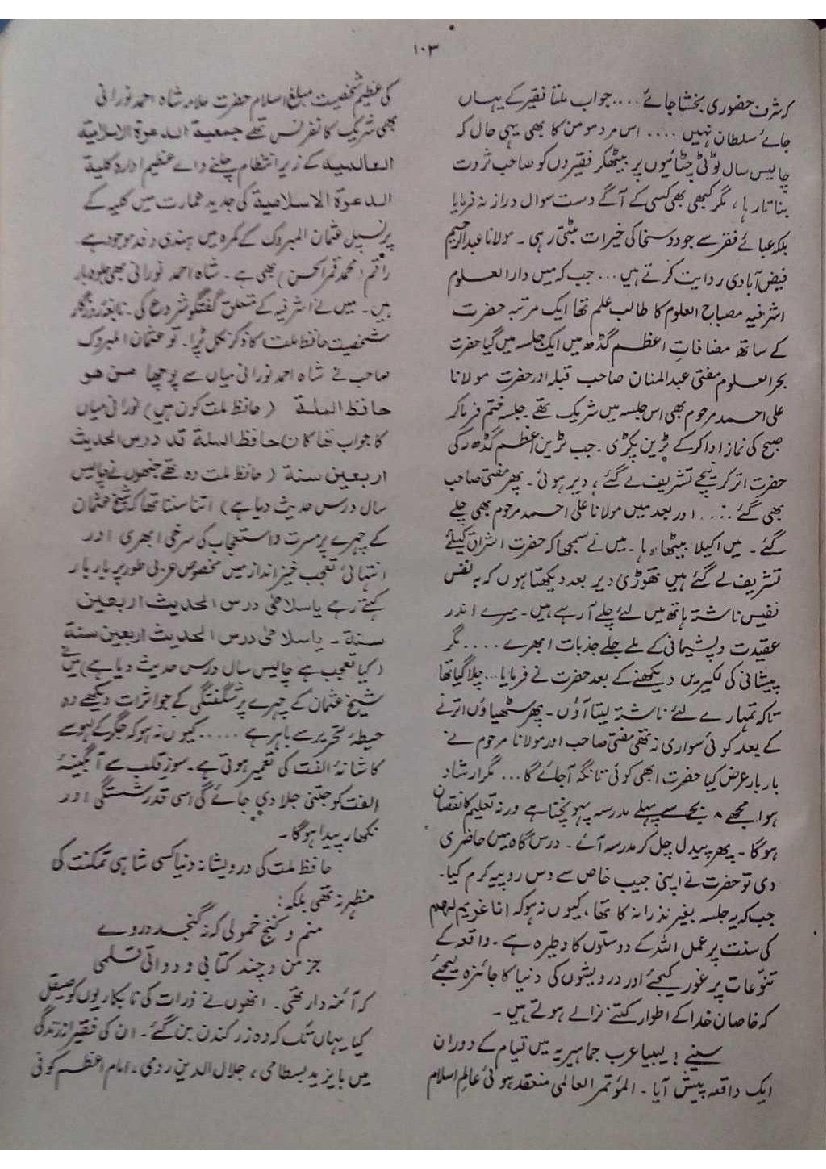 ۱۰۳
کہ شرف حضوری بخشا جائے .... جواب ملتا فقیر کے یہاں
جائے سلطان نہیں .... اس مرد مومن کا بھی یہی حال کہ
چالیس سال ٹوٹی چٹائیوں پر بیٹھکر فقیروں کو صاحب ثروت
بناتا رہا، مگر کبھی بھی کسی کے آگے دست سوال دراز نہ فرمایا
بلکہ عبائے فقر سے جود و سخا کی خیرات بٹتی رہی ۔ مولانا عبدالرحیم
فیض آبادی روایت کرتے ہیں ... جب کہ میں دارالعلوم
اشرفیہ مصباح العلوم کا طالب علم تھا ایک مرتبہ حضرت
کے ساتھ مضافات اعظم گڈھ میں ایک جلسہ میں گیا حضرت
بحرالعلوم مفتی عبدالمنان صاحب قبلہ اور حضرت مولانا
علی احمد مرحوم بھی اس جلسہ میں شریک تھے ۔ جلسہ ختم فرما کر
صبح کی نماز ادا کر کے ٹرین پکڑی ۔ جب ٹرین اعظم گڈھ رکی
حضرت اتر کر نیچے تشریف لے گئے ، دیر ہوئی ۔ پھر مفتی صاحب
بھی گئے .... اور بعد میں مولانا علی احمد مرحوم بھی چلے
گئے ۔ میں اکیلا بیٹھا رہا ۔ میں نے سمجھا کہ حضرت اشراق کیلئے
تشریف لے گئے ہیں تھوڑی دیر بعد دیکھتا ہوں کہ بہ نفس
نفیس ناشتہ ہاتھ میں لئے چلے آرہے ہیں ۔ میرے اندر
عقیدت و پشیمانی کے ملے جلے جذبات ابھرے .... مگر
پیشانی کی لکیریں دیکھنے کے بعد حضرت نے فرمایا... چلا گیا تھا
تاکہ تمہارے لئے ناشتہ لیتا آؤں ۔ پھر سٹھیاؤں اترنے
کے بعد کوئی سواری نہ تھی مفتی صاحب اور مولانا مرحوم نے
بار بار عرض کیا حضرت ابھی کوئی تانگہ آجائے گا ... مگر ارشاد
ہوا مجھے ۸ بجے سے پہلے مدرسہ پہونچنا ہے ورنہ تعلیم کا نقصان
ہوگا ۔ پھر پیدل چل کر مدرسہ آئے ۔ درس گاہ میں حاضری
دی تو حضرت نے اپنی جیب خاص سے دس روپیہ کرم کیا ۔
جب کہ یہ جلسہ بغیر نذرانہ کا تھا، کیوں نہ ہو کہ انا غویم لہم
کی سنت پر عمل اللہ کے دوستوں کا وطیرہ ہے ۔ واقعہ کے
تنوعات پر غور کیجئے اور درویشوں کی دنیا کا جائزہ لیجئے
کہ خاصان خدا کے اطوار کتنے نرالے ہوتے ہیں ۔
سنیے ! لیبیا عرب جماہیریہ میں قیام کے دوران
ایک واقعہ پیش آیا ۔ المؤتمر العالمی منعقد ہوئی عالم اسلام
کی عظیم شخصیت مبلغ اسلام حضرت علامہ شاہ احمد نورانی
بھی شریک کانفرنس تھے جمعیة الدعوة الاسلامیة
العالمیة کے زیر انتظام چلنے والے عظیم ادارہ کلیة
الدعوة الاسلامیة کی جدید عمارت میں کلیہ کے
پرنسپل عثمان المبروک کے کمرہ میں ہندی وفد موجود ہے
راقم (محمد قمرالحسن) بھی ہے ۔ شاہ احمد نورانی بھی جلوہ بار
ہیں ۔ میں نے اشرفیہ کے متعلق گفتگو شروع کی ۔ نابغۂ روزگار
شخصیت حافظ ملت کا ذکر نکل پڑا ۔ تو عثمان المبروک
صاحب نے شاہ احمد نورانی میاں سے پوچھا من ھو
حافظ الملة (حافظ ملت کون ہیں) نورانی میاں
کا جواب تھا کان حافظ الملة قد درس الحدیث
اربعین سنة (حافظ ملت وہ تھے جنھوں نے چالیس
سال درس حدیث دیا ہے) اتنا سننا تھا کہ شیخ عثمان
کے چہرے پر مسرت و استعجاب کی سرخی ابھری اور
انتہائی تعجب خیز انداز میں مخصوص عربی طور پر بار بار
کہتے رہے یا سلام درس الحدیث اربعین
سنة ۔ یا سلام درس الحدیث اربعین سنة
(کیا تعجب ہے چالیس سال درس حدیث دیا ہے) میں نے
شیخ عثمان کے چہرے پر شگفتگی کے جو اثرات دیکھے وہ
حیطۂ تحریر سے باہر ہے ..... کیوں نہ ہو کہ جگر کے لہو سے
کاشانۂ الفت کی تعمیر ہوتی ہے ۔ سوز قلب سے آبگینۂ
الفت کو جتنی جلا دی جائے گی اسی قدر شستگی اور
نکھار پیدا ہوگا ۔
حافظ ملت کی درویشانہ دنیا کسی شاہی تمکنت کی
مظہر نہ تھی بلکہ :
منم و کنج خمولی کہ نہ گنجد در وے
جز من و چند کتابی و دواتی قلمی
کہ آئنہ دار تھی ۔ انھوں نے ذرات کی تابکاریوں کو صیقل
کیا یہاں تک کہ وہ زر کندن بن گئے ۔ ان کی فقیرانہ زندگی
میں بایزید بسطامی ، جلال الدین رومی ، امام اعظم کوفی